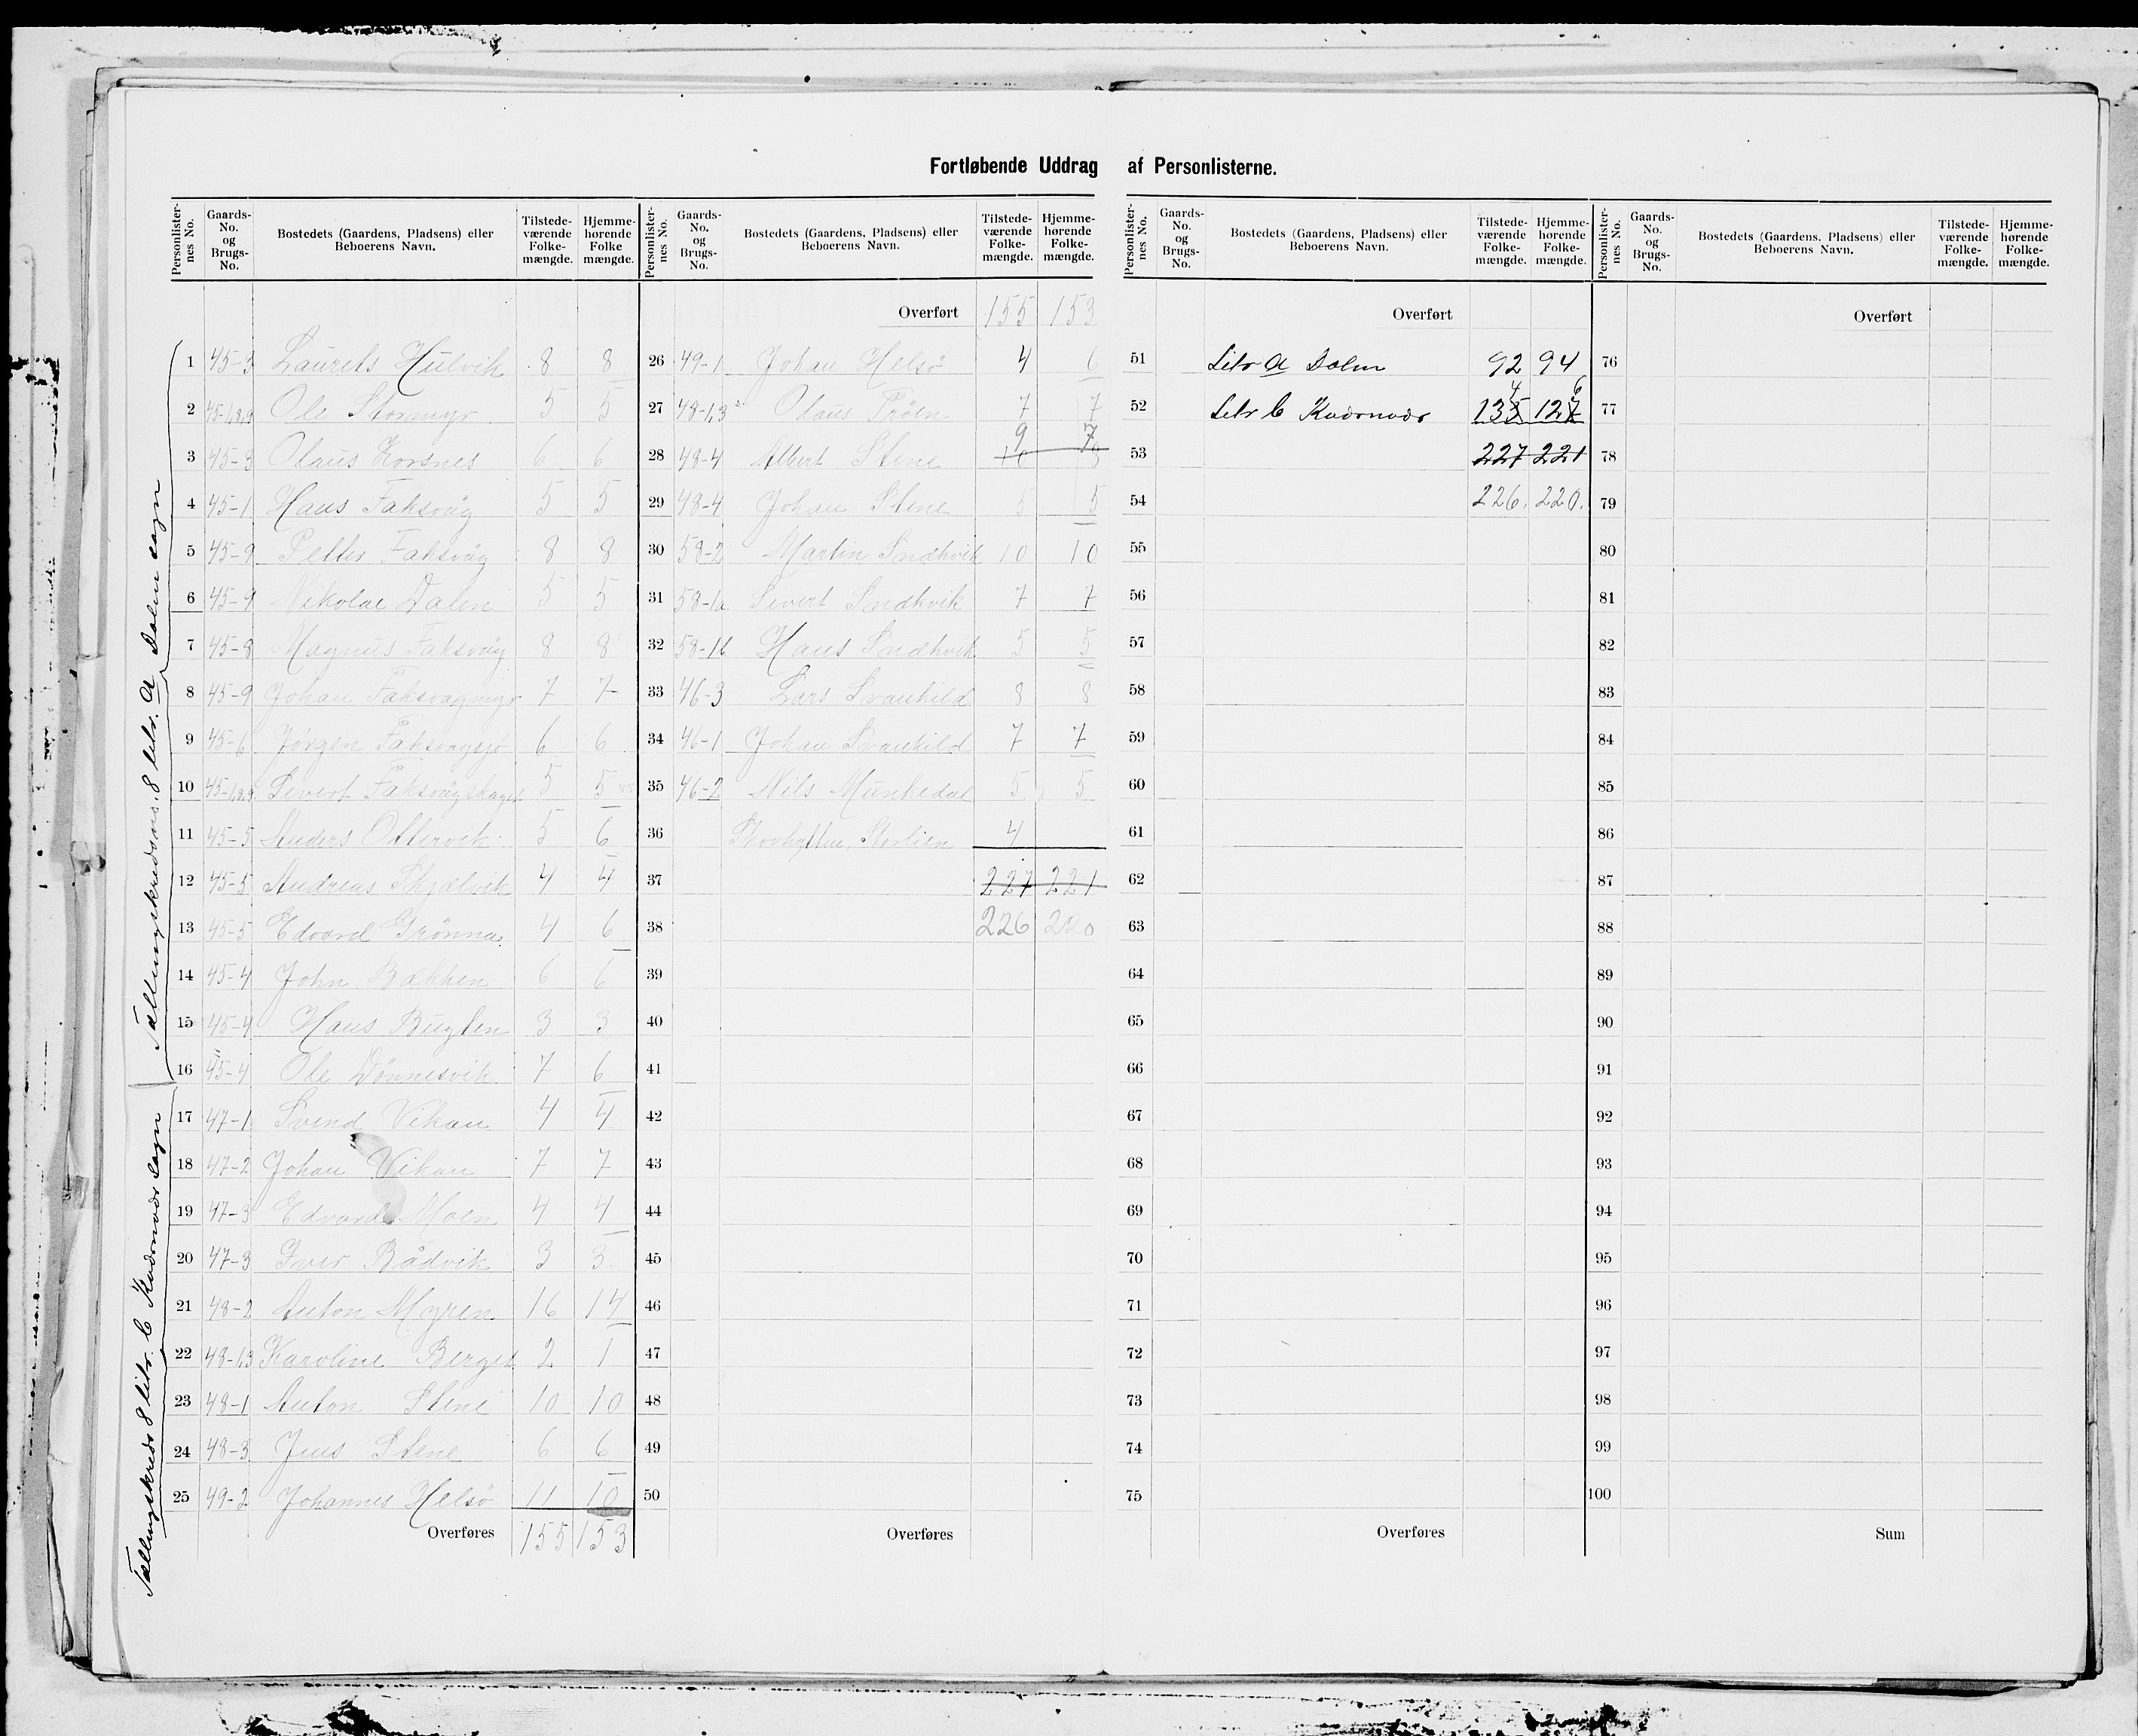 Fortløbende Uddrag af Personlisterne.
Personlister-nes No. Gaards-No. og Brugs-No. Bostedets (Gaardens, Pladsens) eller Beboerens Navn. Tilstede-værende Folke-mængde. Hjemme-hørende Folke mængde.
1 45-3 Laurits Hulvik 8 8
2 45-1,8,9 Ole Stormyr 5 5
3 45-3 Olaus Korsnes 6 6
4 45-1 Hans Faksvåg 5 5
5 45-9 Petter Faksvåg 8 8
6 45-9 Nikolai Dalen 5 5
7 45-8 Magnus Faksvåg 8 8
8 45-9 Johan Faksvagmyr 7 7
9 45-6 Jørgen Faksvagsjø 6 6
10 45-1,8,9 Sivert Faksvåg 5 5
11 45-5 Anders Ottervik 5 6
12 45-5 Andreas 4 4
13 45-5 Edvard Grønna 4 6
14 45-4 John Bækken 6 6
15 45-4 Hans Bugten 3 3
16 45-4 Ole Dønnesvik 7 6
17 47-1 Svend Vikan 4 4
18 47-2 Johan Vikan 7 7
19 47-3 Edvard Moen 4 4
20 47-3 Iver Rådvik 3 3
21 48-2 Anton Myren 16 14
22 48-1,3 Karoline Berget 2 1
23 48-1 Anton Stene 10 10
24 48-3 Jens Stene 6 6
25 49-2 Johannes Helsø 11 10
Overføres 155 153
Tællingskreds 8 litr. a Dolm sogn
Tællingskreds 8 litr. b Kværnvær sogn
Personlister-nes No. Gaards-No. og Brugs-No. Bostedets (Gaardens, Pladsens) eller Beboerens Navn. Tilstede-værende Folke-mængde. Hjemme-hørende Folke-mængde.
Overført 155 153
26 49-1 Johan Helsø 4 6
27 48-1,3 Olaus Trøen 7 7
28 48-4 Albert Stene 10 9 7
29 48-4 Johan Stene 5 5
30 58-2 Martin Sndhvik 10 10
31 58-1a Sivert Sndhvik 7 7
32 58-1b Hans Sndhvik 5 5
33 46-3 Lars Svanhild 8 8
34 46-1 Johan Svanhild 7 7
35 46-2 Nils Munkedal 5 5
36 4
37 227 221
38 226 220
39
40
41
42
43
44
45
46
47
48
49
50
Overføres
Personlister-nes No. Gaards-No. og Brugs-No. Bostedets (Gaardens, Pladsens) eller Beboerens Navn. Tilstede-værende Folke-mængde. Hjemme-hørende Folke-mængde.
Overført
51 Litr a Dolm 92 94
52 Litr b Kværnvær 135 4 127 6
53 227 221
54 226. 220.
55
56
57
58
59
60
61
62
63
64
65
66
67
68
69
70
71
72
73
74
75
Overføres
Personlister-nes No. Gaards-No. og Brugs-No. Bostedets (Gaardens, Pladsens) eller Beboerens Navn. Tilstede-værende Folke-mængde. Hjemme-hørende Folke-mængde.
Overført
76
77
78
79
80
81
82
83
84
85
86
87
88
89
90
91
92
93
94
95
96
97
98
99
100
Sum